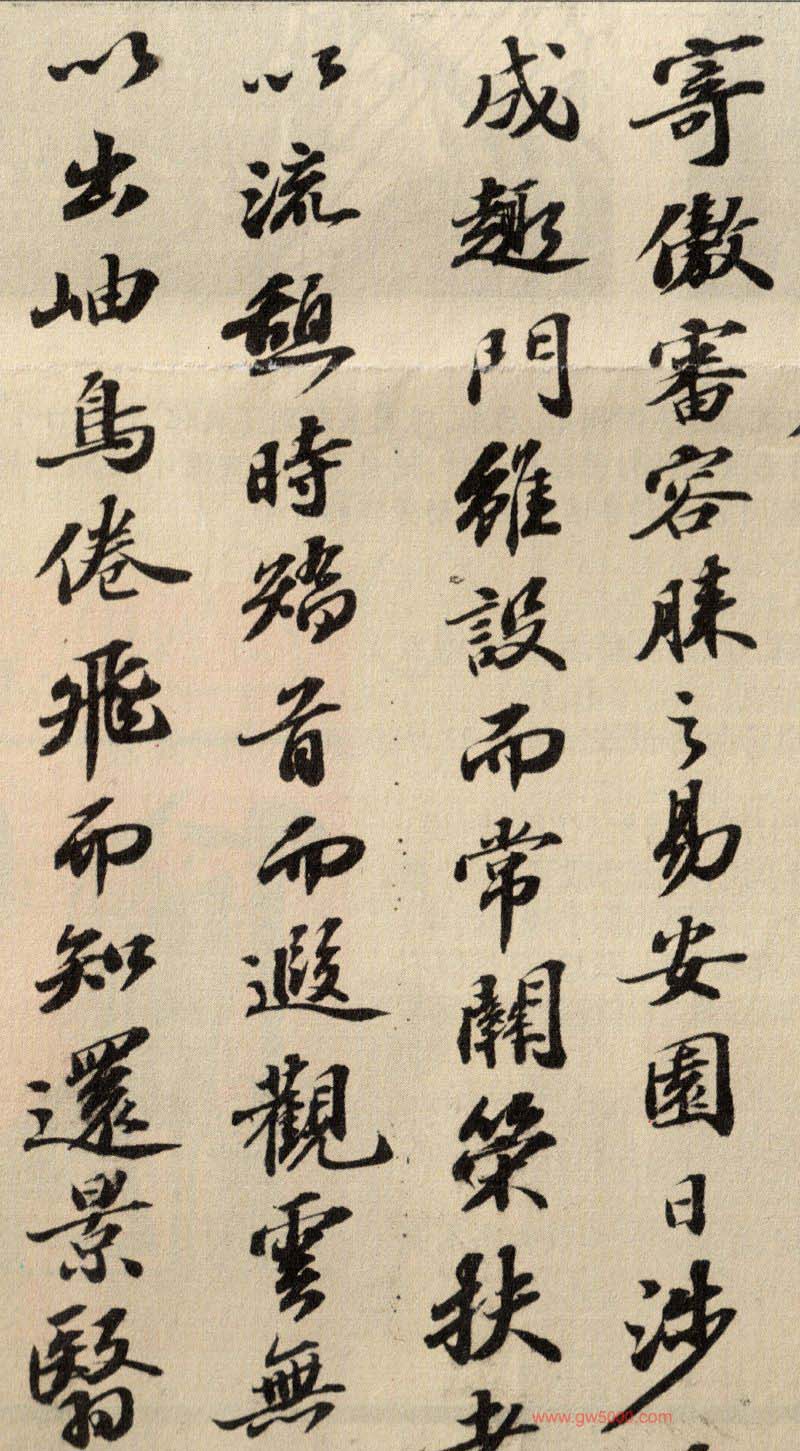 寄傲審容膝之易安園日涉
成趣門雖設而常關策扶老
以流憩時矯首而遐觀雲無
以出岫鳥倦飛而知還景翳
www.gw5000.com